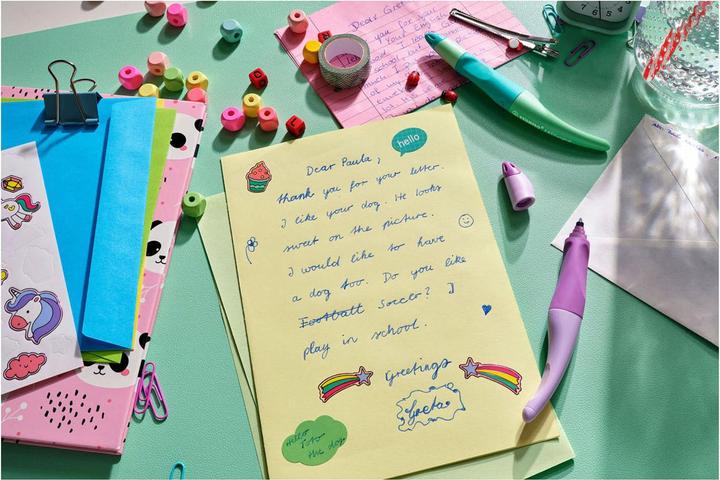 Dear Paula,
thank you for your letter.
I like your dog. He looks
sweet on the picture.
I would like to have
a dog too. Do you like
Football Soccer? I
play in school.
Greetings
Greta
hello
Hello
to
the dog
Dear Gret
you for you